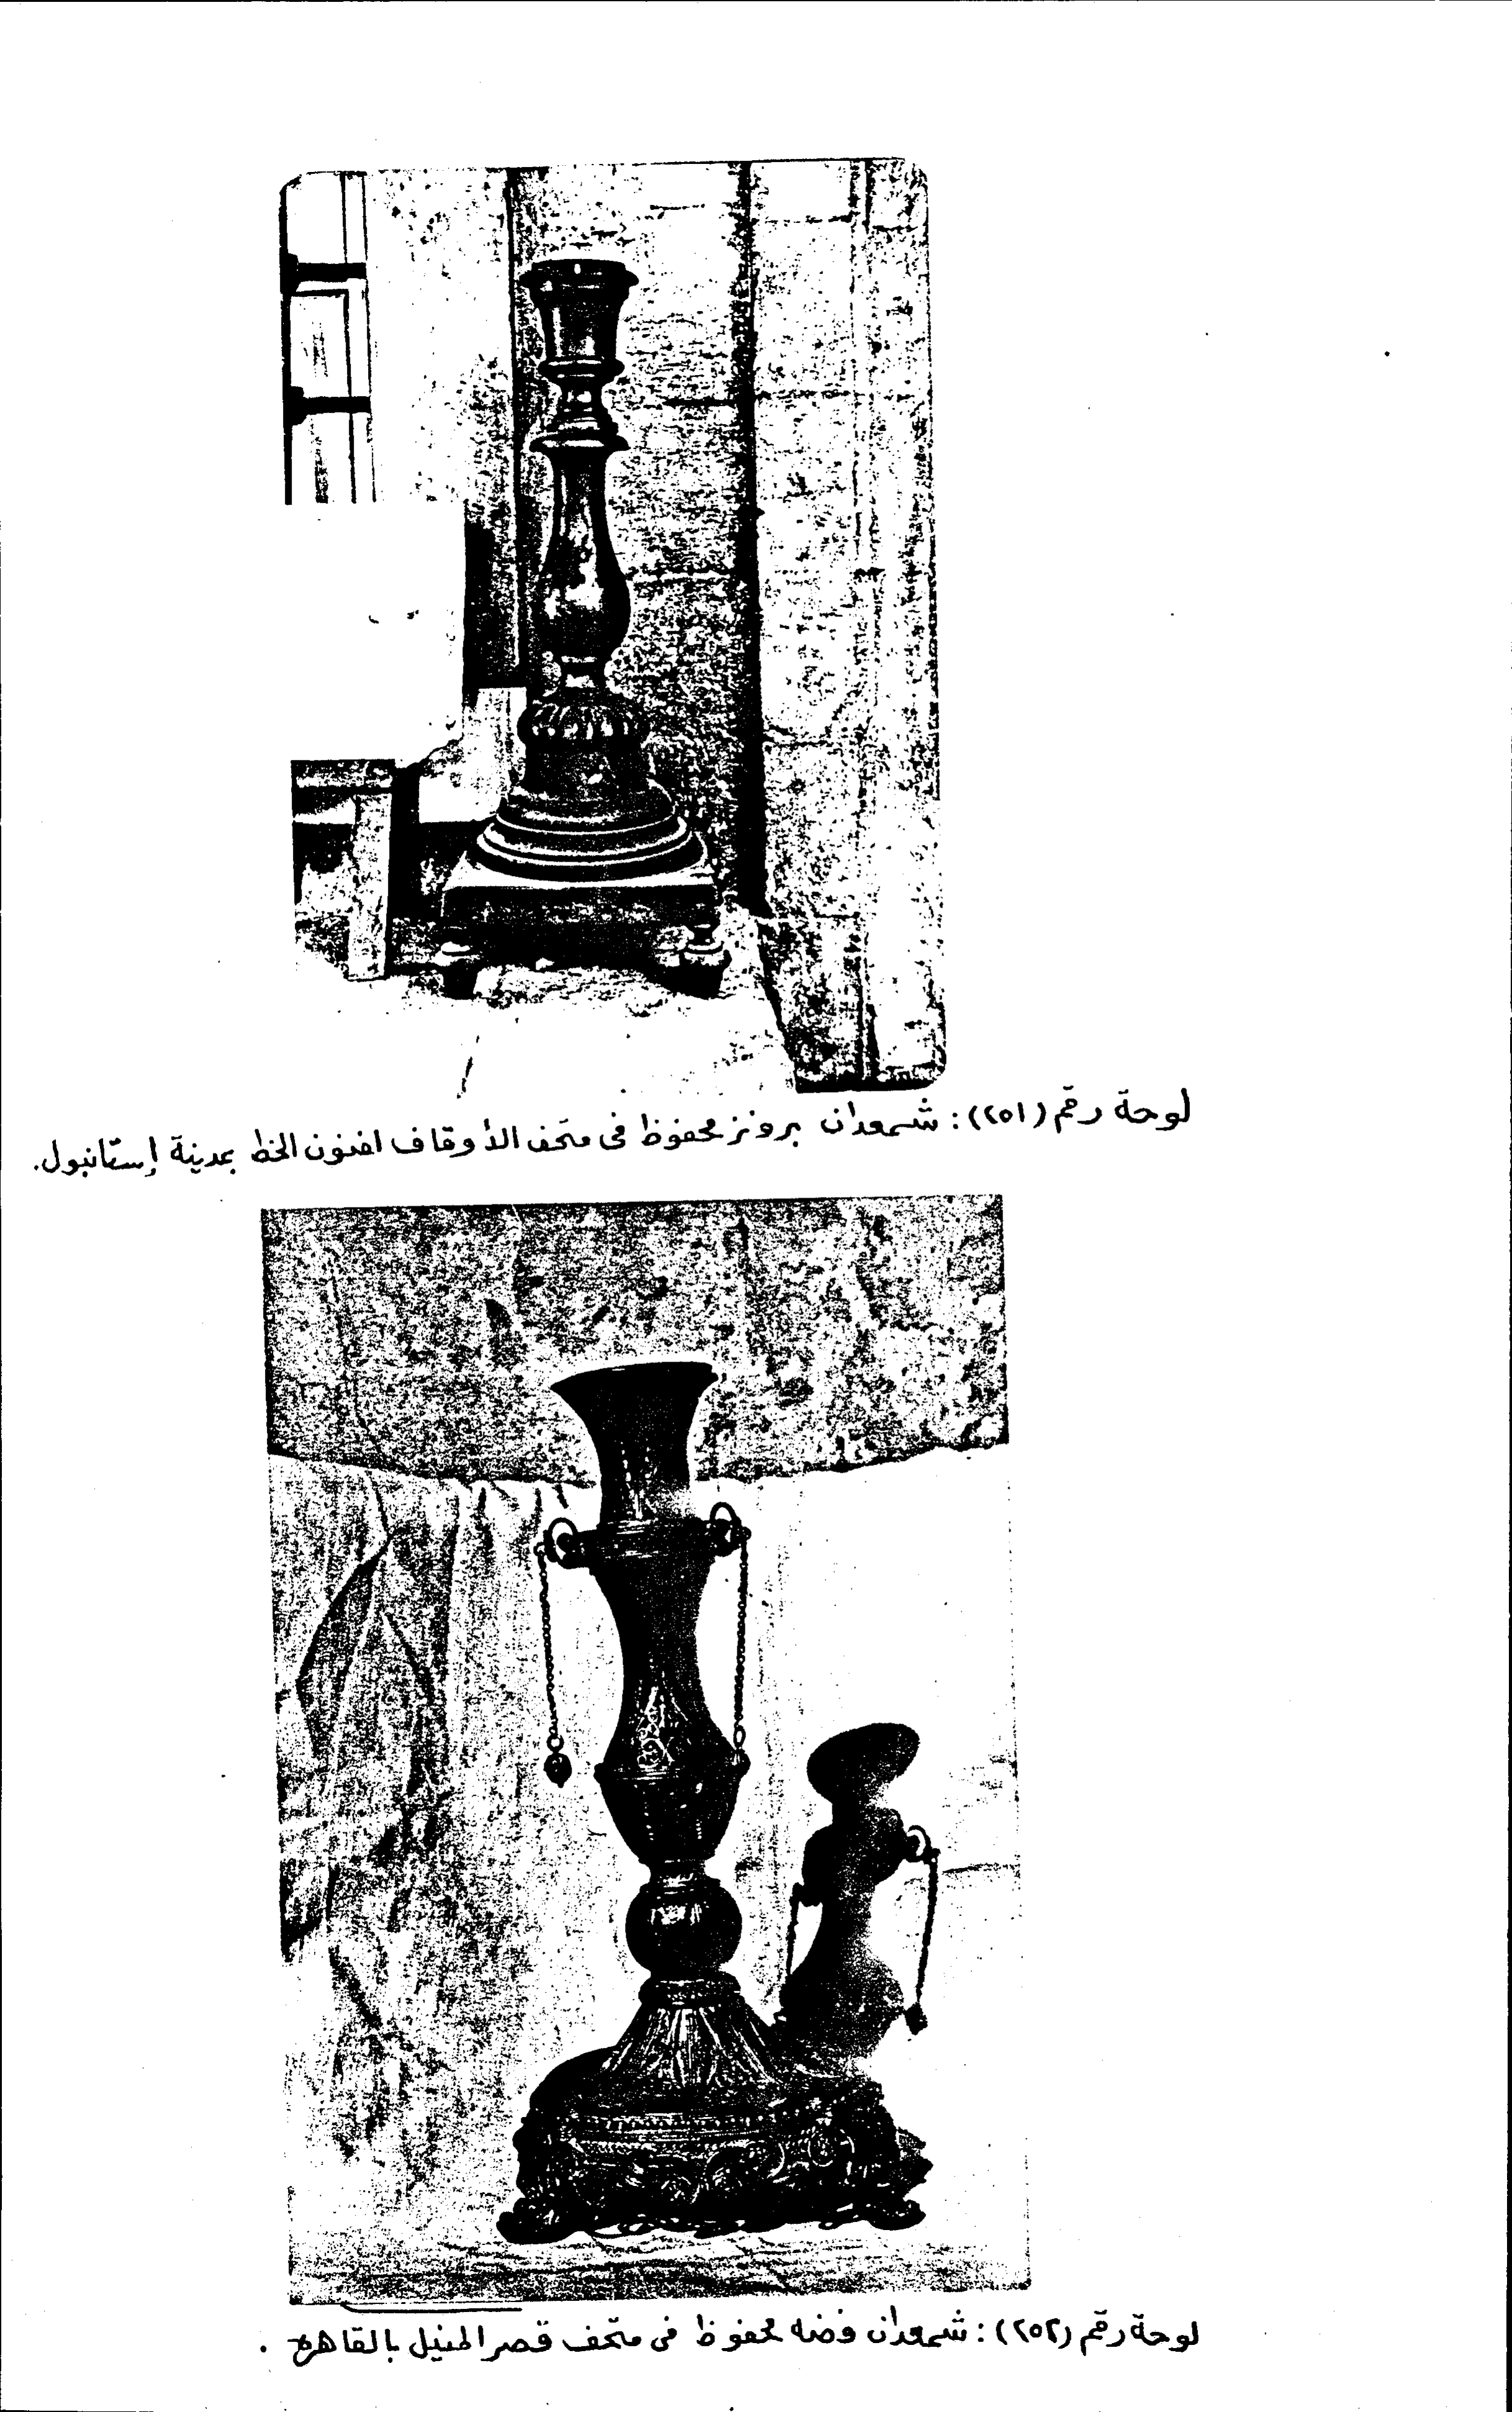 لوحة رقم (٢٥١): شمعدان برونز محفوظ فى متحف الأوقاف لفنون الخط بمدينة إستانبول.
لوحة رقم (٢٥٢): شمعدان فضه محفوظ فى متحف قصر المنيل بالقاهرة.